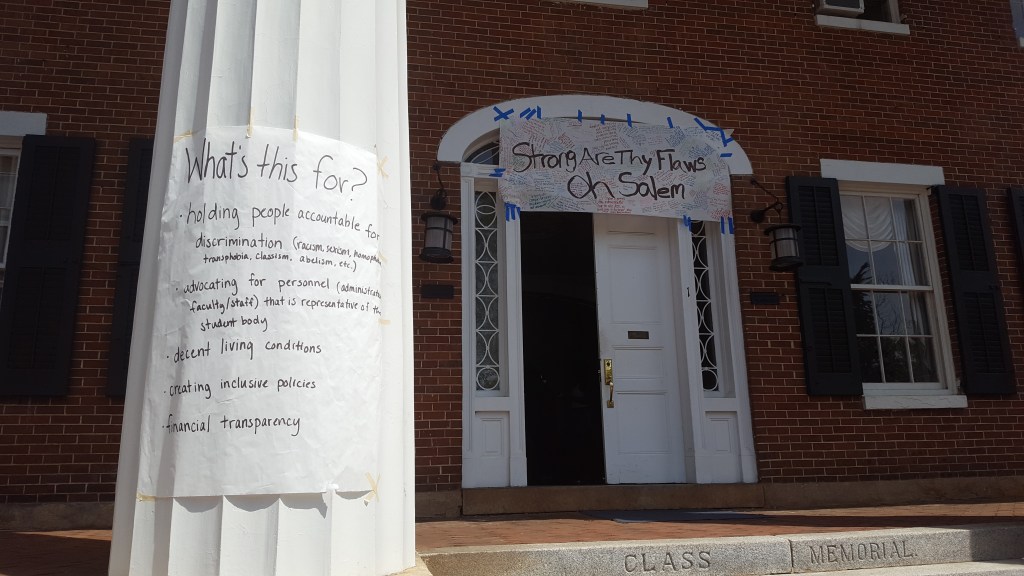 What's this for?
· holding people accountable for
discrimination (racism, sexism, homophobia,
transphobia, classism, abelism, etc.)
· advocating for personnel (administration
faculty/staff) that is representative of the
student body
· decent living conditions
· creating inclusive policies
· financial transparency
Strong Are Thy Flaws
Oh Salem
CLASS MEMORIAL